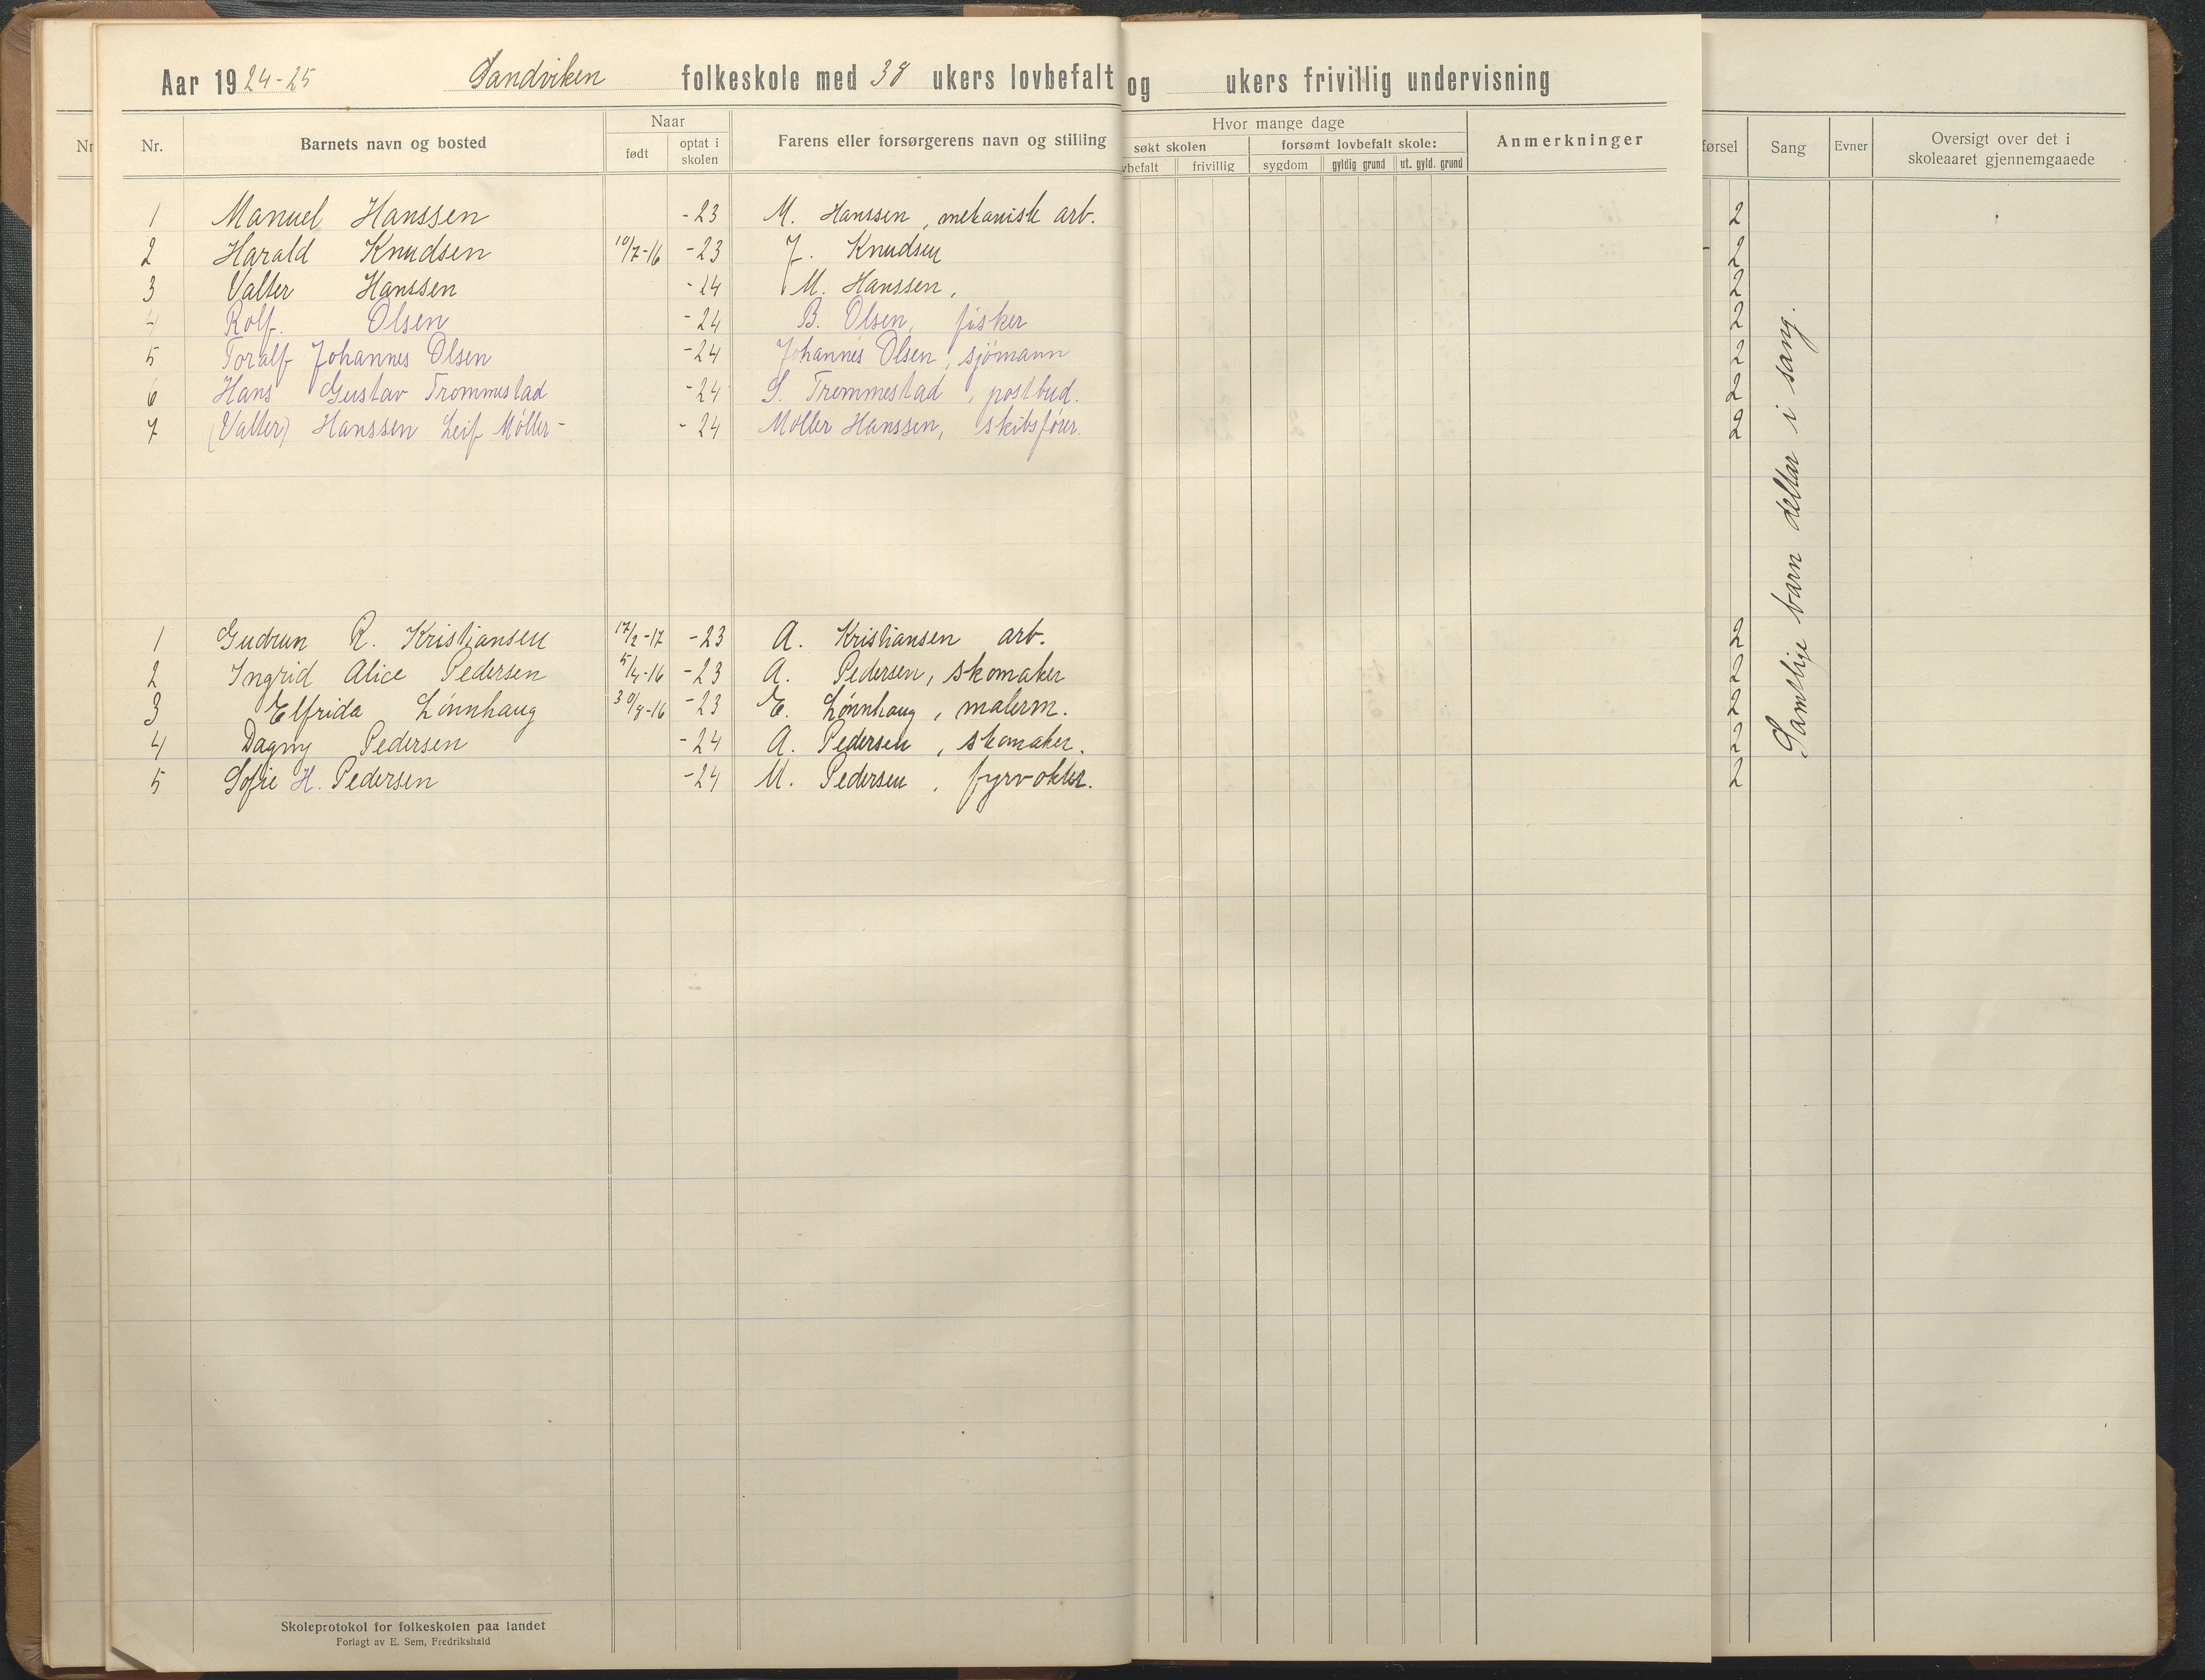 Aar 1924-25 Sandviken folkeskole med 38 ukers lovbefalt og ukers frivillig undervisning
Nr. Barnets navn og bosted Naar Farens eller forsørgerens navn og stilling Hvor mange dage Anmerkninger
født optat i skolen søkt skolen forsømt lovbefalt skole:
frivillig sygdom gyldig grund ut. gyld. grund
Sang Evner Oversigt over det i
skoleaaret gjennemgaaede
1 Manuel Hanssen -23 M. Hanssen, mekanisk arb. 2
2 Harald Knudsen 10/7-16 -23 J. Knudsen 2
3 Valter Hanssen -24 M. Hanssen, 2
4 Rolf. Olsen -24 B. Olsen, fisker 2
5 Toralf Johannes Olsen -24 Johannes Olsen, sjömann 2
6 Hans Gustav Trommestad -24 S. Trommestad, postbud. 2
7 (Valter) Hanssen Leif Möller- -24 Möller Hanssen, skibsförer. 2
1 Gudrun R. Kristiansen 17/2-17 -23 A. Kristiansen arb. 2
2 Ingrid Alice Pedersen 5/4-16 -23 A. Pedersen, skomaker 2
3 Elfrida Lönnhaug 30/8-16 -23 E. Lönnhaug, malerm. 2
4 Dagny Pedersen -24 A. Pedersen, skomaker. 2
5 Sofie H. Pedersen -24 M. Pedersen, fyrvokter. 2
Samtlige barn deltar i sang.
Skoleprotokol for folkeskolen paa landet
Forlagt av E. Sem, Fredrikshald